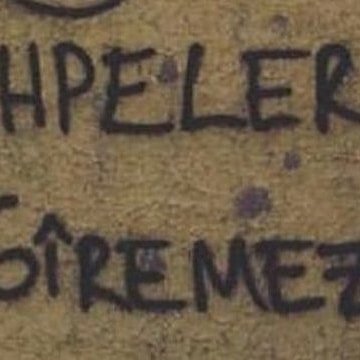 HPELER
GİREMEZ